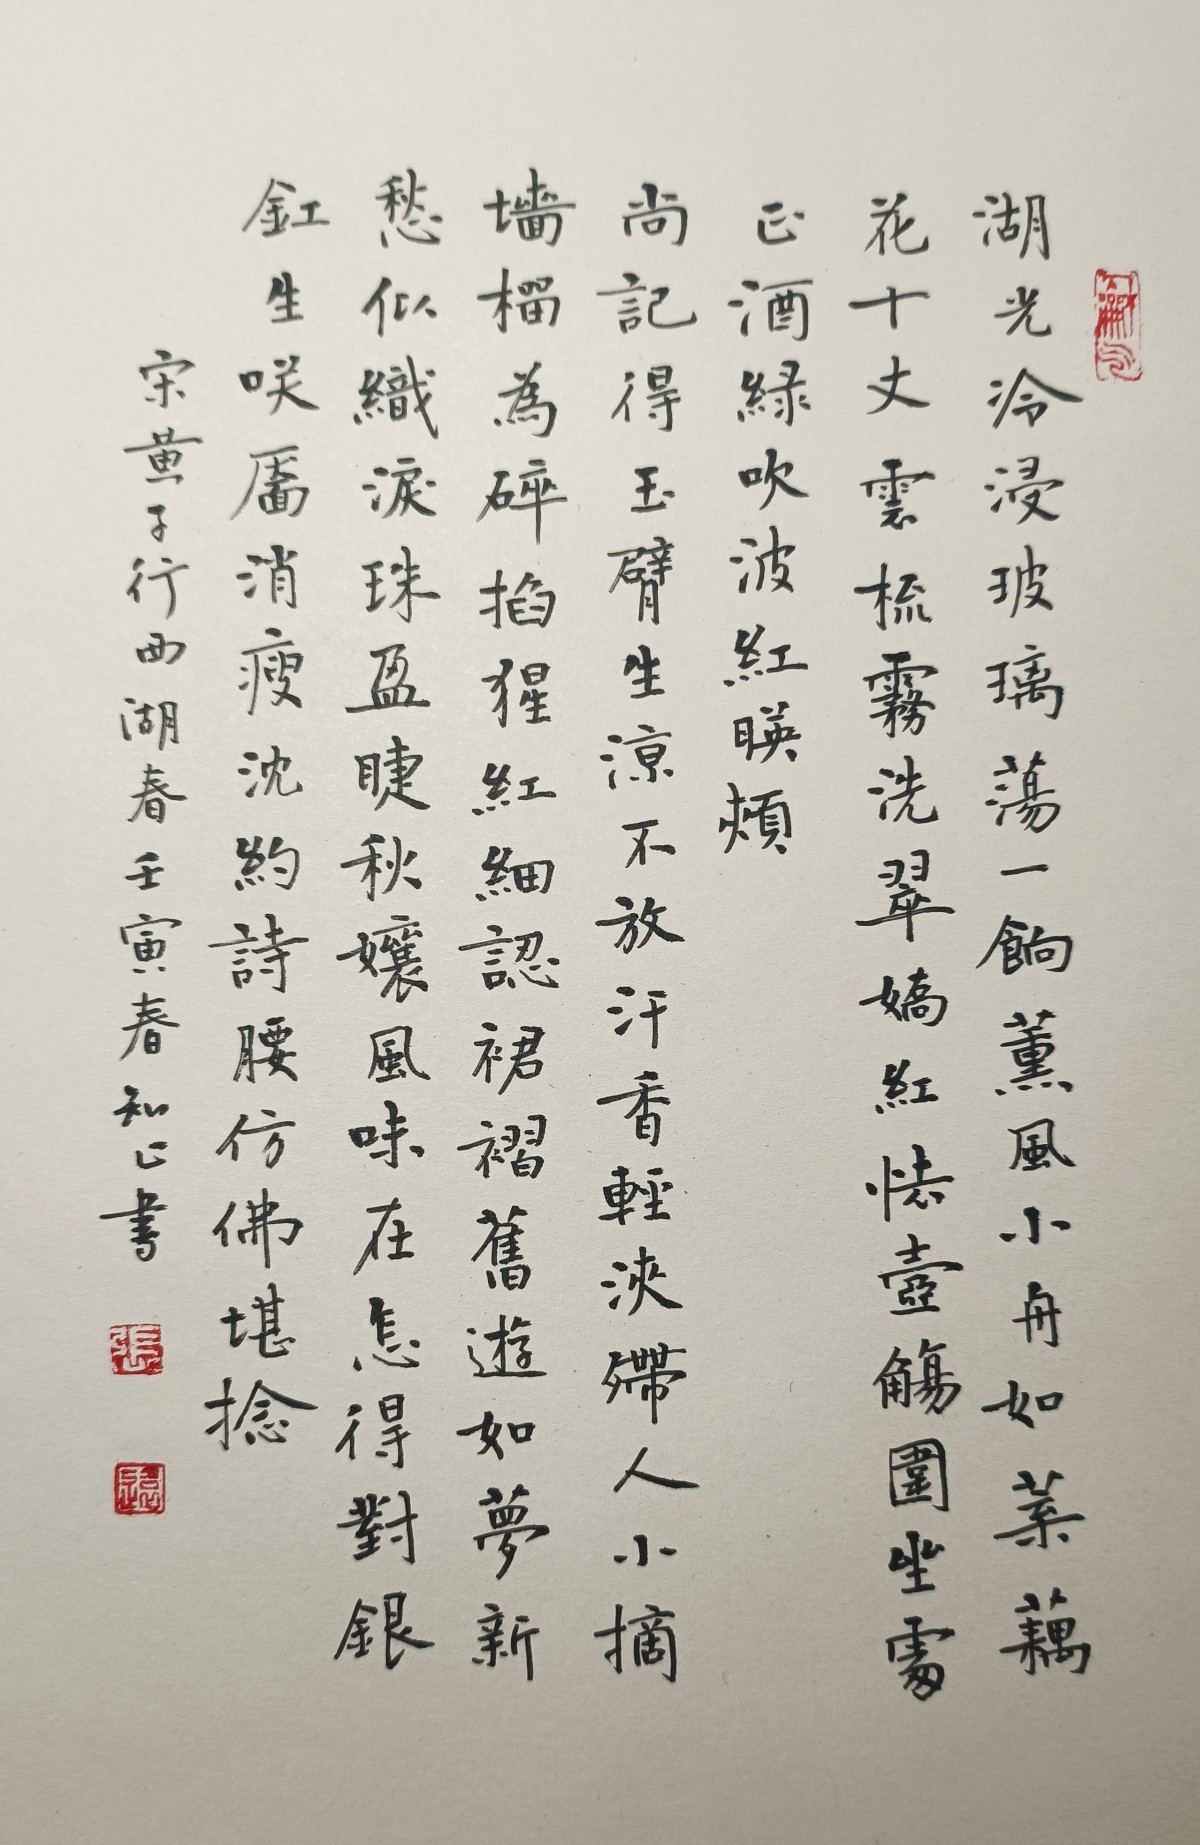 湖光冷浸玻璃蕩一餉薰風小舟如葉藕
花十丈雲梳霧洗翠嬌紅怯壺觴圍坐處
正酒綠吹波紅暎頰
尚記得玉臂生涼不放汗香輕浹殢人小摘
墻榴為碎掐猩紅細認裙褶舊遊如夢新
愁似織淚珠盈睫秋孃風味在怎得對銀
釭生咲靨消瘦沈約詩腰仿佛堪捻
宋黃子行西湖春壬寅春知正書
張